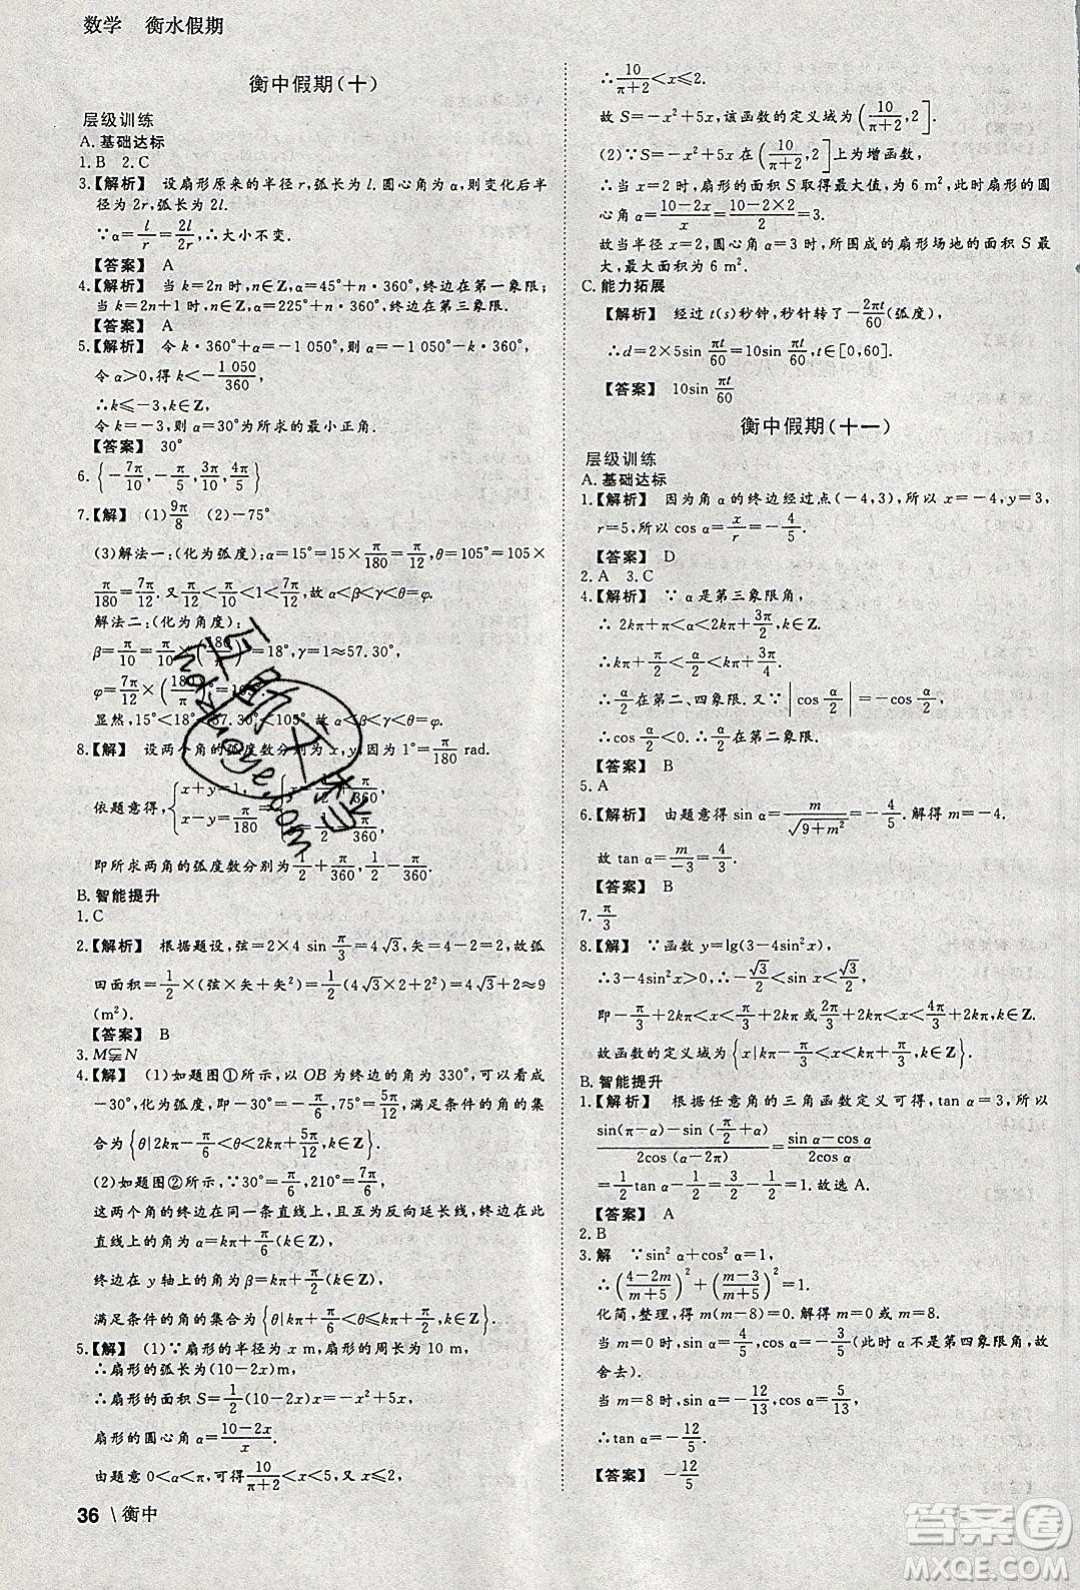 数学　衡水假期
衡中假期(十)
层级训练
A. 基础达标
1. B　2. C
3.【解析】　设扇形原来的半径 r,弧长为 l. 圆心角为 α,则变化后半
径为 2r,弧长为 2l.
∵α=l/r=2l/2r,∴大小不变.
【答案】　A
4.【解析】　当 k=2n 时,n∈Z,α=45°+n·360°,终边在第一象限;
当 k=2n+1 时,n∈Z,α=225°+n·360°,终边在第三象限.
【答案】　A
5.【解析】　令 k·360°+α=-1 050°,
令 α>0,得 k<-1 050/360,
∴k⩽-3,且 k∈Z,
令 k=-3,则 α=30°为所求的最小正角.
【答案】　30°
6. {-7π/10,-π/5,3π/10,4π/5}
7.【解】　(1)9π/8　(2)-75°
(3)解法一:(化为弧度):α=15°=15×π/180=π/12,θ=105°=105×
π/180=7π/12. 又π/12<π/10<1<7π/12,故 α<β<γ<θ=φ.
解法二:(化为角度):
β=π/10=π/10×(180/π)°=18°,γ=1≈57.30°,
φ=7π/12×(180/π)°=105°.
显然,15°<18°<57.30°<105°. 故 α<β<γ<θ=φ.
8.【解】　设两个角的弧度数分别为 x,y,因为 1°=π/180 rad.
依题意得,{x+y=1, x-y=π/180　1/2+π/360, 1/2-π/360.
即所求两角的弧度数分别为1/2+π/360,1/2-π/360.
B. 智能提升
1. C
2.【解析】　根据题设,弦=2×4 sin π/3=4√3,矢=4-2=2,故弧
田面积=1/2×(弦×矢+矢²)=1/2(4√3×2+2²)=4√3+2≈9
(m²).
【答案】　B
3. M⫋N
4.【解】　(1)如题图①所示,以 OB 为终边的角为 330°,可看成为
-30°,化为弧度,即-30°=-π/6,75°=5π/12,满足条件的角的集
合为{θ|2kπ-π/6<θ<2kπ+5π/12,k∈Z}.
(2)如题图②所示,∵30°=π/6,210°=7π/6,
这两个角的终边在同一条直线上,且互为反向延长线,终边在该
直线上的角为 α=kπ+π/6(k∈Z),
终边在 y 轴上的角为 β=kπ+π/2(k∈Z),
满足条件的角的集合为{θ|kπ+π/6<θ<kπ+π/2,k∈Z}.
5.【解】　(1)∵扇形的半径为 x m,扇形的周长为 10 m,
∴扇形的弧长为(10-2x)m,
∴扇形的面积 S=1/2(10-2x)x=-x²+5x,
扇形的圆心角 α=10-2x/x.
由题意 0<α<π,可得10/π+2<x<5,又 x⩽2,
36 \ 衡中
∴10/π+2<x⩽2.
故 S=-x²+5x,该函数的定义域为(10/π+2,2].
(2)∵S=-x²+5x 在(10/π+2,2]上为增函数,
∴当 x=2 时,扇形的面积 S 取得最大值,为 6 m²,此时扇形的圆
心角 α=10-2x/x=10-2×2/2=3.
故当半径 x=2,圆心角 α=3 时,所围成的扇形场地的面积 S 最
大,最大面积为 6 m².
C. 能力拓展
【解析】　经过 t(s)秒钟,秒针转了-2πt/60(弧度),
∴d=2×5sin πt/60=10sin πt/60,t∈[0,60].
【答案】　10sin πt/60
衡中假期(十一)
层级训练
A. 基础达标
1.【解析】　因为角 α 的终边经过点(-4,3),所以 x=-4,y=3,
r=5,所以 cos α=x/r=-4/5.
【答案】　D
2. A　3. C
4.【解析】　∵α 是第三象限角,
∴2kπ+π<α<2kπ+3π/2,k∈Z.
∴kπ+π/2<α/2<kπ+3π/4,k∈Z.
∴α/2在第二、四象限. 又∵|cos α/2|=-cos α/2,
∴cos α/2<0. ∴α/2在第二象限.
【答案】　B
5. A
6.【解析】　由题意得 sin α=m/√9+m²=-4/5. 解得 m=-4.
故 tan α=m/-3=-4/-3=4/3.
【答案】　B
7. π/3
8.【解】　∵函数 y=lg(3-4sin²x),
∴3-4sin²x>0,∴-√3/2<sin x<√3/2,
即-π/3+2kπ<x<π/3+2kπ 或2π/3+2kπ<x<4π/3+2kπ,k∈Z.
故函数的定义域为{x|kπ-π/3<x<kπ+π/3,k∈Z}.
B. 智能提升
1.【解析】　根据任意角的三角函数定义可得,tan α=3,所以
sin(π-α)-sin(π/2+α)/2cos(α-2π)=sin α-cos α/2cos α
=1/2tan α-1/2=3/2-1/2=1. 故选 A.
【答案】　A
2. B
3. 解　∵sin² α+cos² α=1,
∴(4-2m/m+5)²+(m-3/m+5)²=1,
化简,整理得 m(m-8)=0. 解得 m=0 或 m=8.
当 m=0 时,sin α=4/5,cos α=-3/5(此时 α 不是第四象限角,故
舍去).
当 m=8 时,sin α=-12/13,cos α=5/13,
∴tan α=-12/5.
【答案】　-12/5
互助文档
hdzuoye.com
答案圈
MXQE.COM